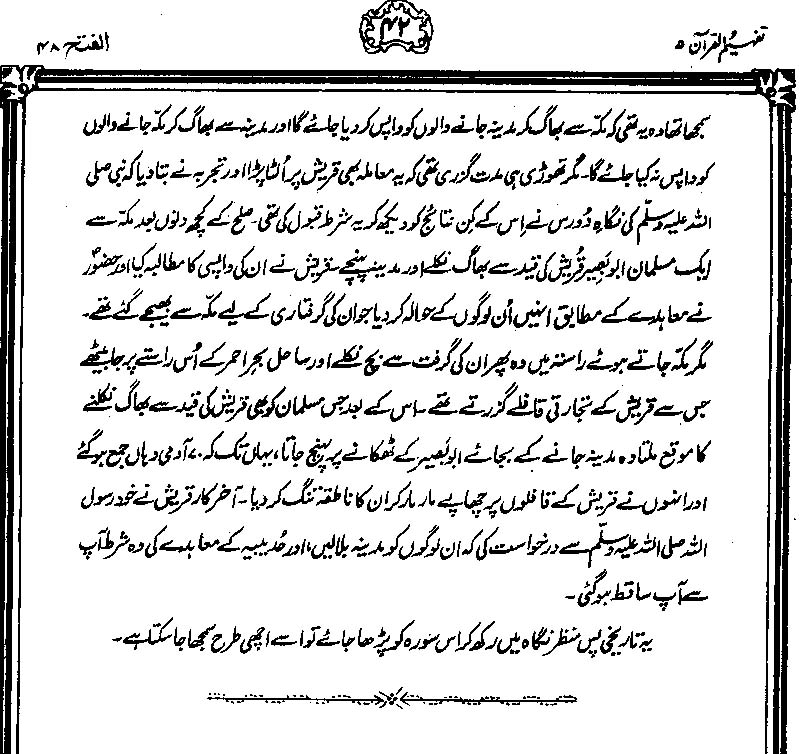 تفہیم القرآن ۵
۴۲
الفتح ۴۸
سمجھا تھا وہ یہ تھی کہ مکہ سے بھاگ کر مدینہ جانے والوں کو واپس کر دیا جائے گا اور مدینہ سے بھاگ کر مکہ جانے والوں
کو واپس نہ کیا جائے گا۔ مگر تھوڑی ہی مدت گزری تھی کہ یہ معاملہ بھی قریش پر اُلٹا پڑا اور تجربہ نے بتا دیا کہ نبی صلی
اللہ علیہ وسلّم کی نگاہِ دُور رس نے اِس کے کن نتائج کو دیکھ کر یہ شرط قبول کی تھی۔ صلح کے کچھ دنوں بعد مکہ سے
ایک مسلمان ابو بَصِیر قُریش کی قید سے بھاگ نکلے اور مدینہ پہنچے۔ قریش نے ان کی واپسی کا مطالبہ کیا اور حضورؐ
نے معاہدے کے مطابق انہیں اُن لوگوں کے حوالہ کر دیا جو ان کی گرفتاری کے لیے مکہ سے بھیجے گئے تھے۔
مگر مکہ جاتے ہوئے راستہ میں وہ پھر ان کی گرفت سے بچ نکلے اور ساحل بحر احمر کے اُس راستے پر جا بیٹھے
جس سے قریش کے تجارتی قافلے گزرتے تھے۔ اس کے بعد جس مسلمان کو بھی قریش کی قید سے بھاگ نکلنے
کا موقع ملتا وہ مدینہ جانے کے بجائے ابو بَصیر کے ٹھکانے پر پہنچ جاتا، یہاں تک کہ ۷۰ آدمی وہاں جمع ہو گئے
اور انہوں نے قریش کے قافلوں پر چھاپے مار مار کر ان کا ناطقہ تنگ کر دیا۔ آخر کار قریش نے خود رسول
اللہ صلی اللہ علیہ وسلّم سے درخواست کی کہ ان لوگوں کو مدینہ بلا لیں، اور حُدیبیہ کے معاہدے کی وہ شرط آپ
سے آپ ساقط ہو گئی۔
یہ تاریخی پس منظر نگاہ میں رکھ کر اس سورہ کو پڑھا جائے تو اسے اچھی طرح سمجھا جا سکتا ہے۔